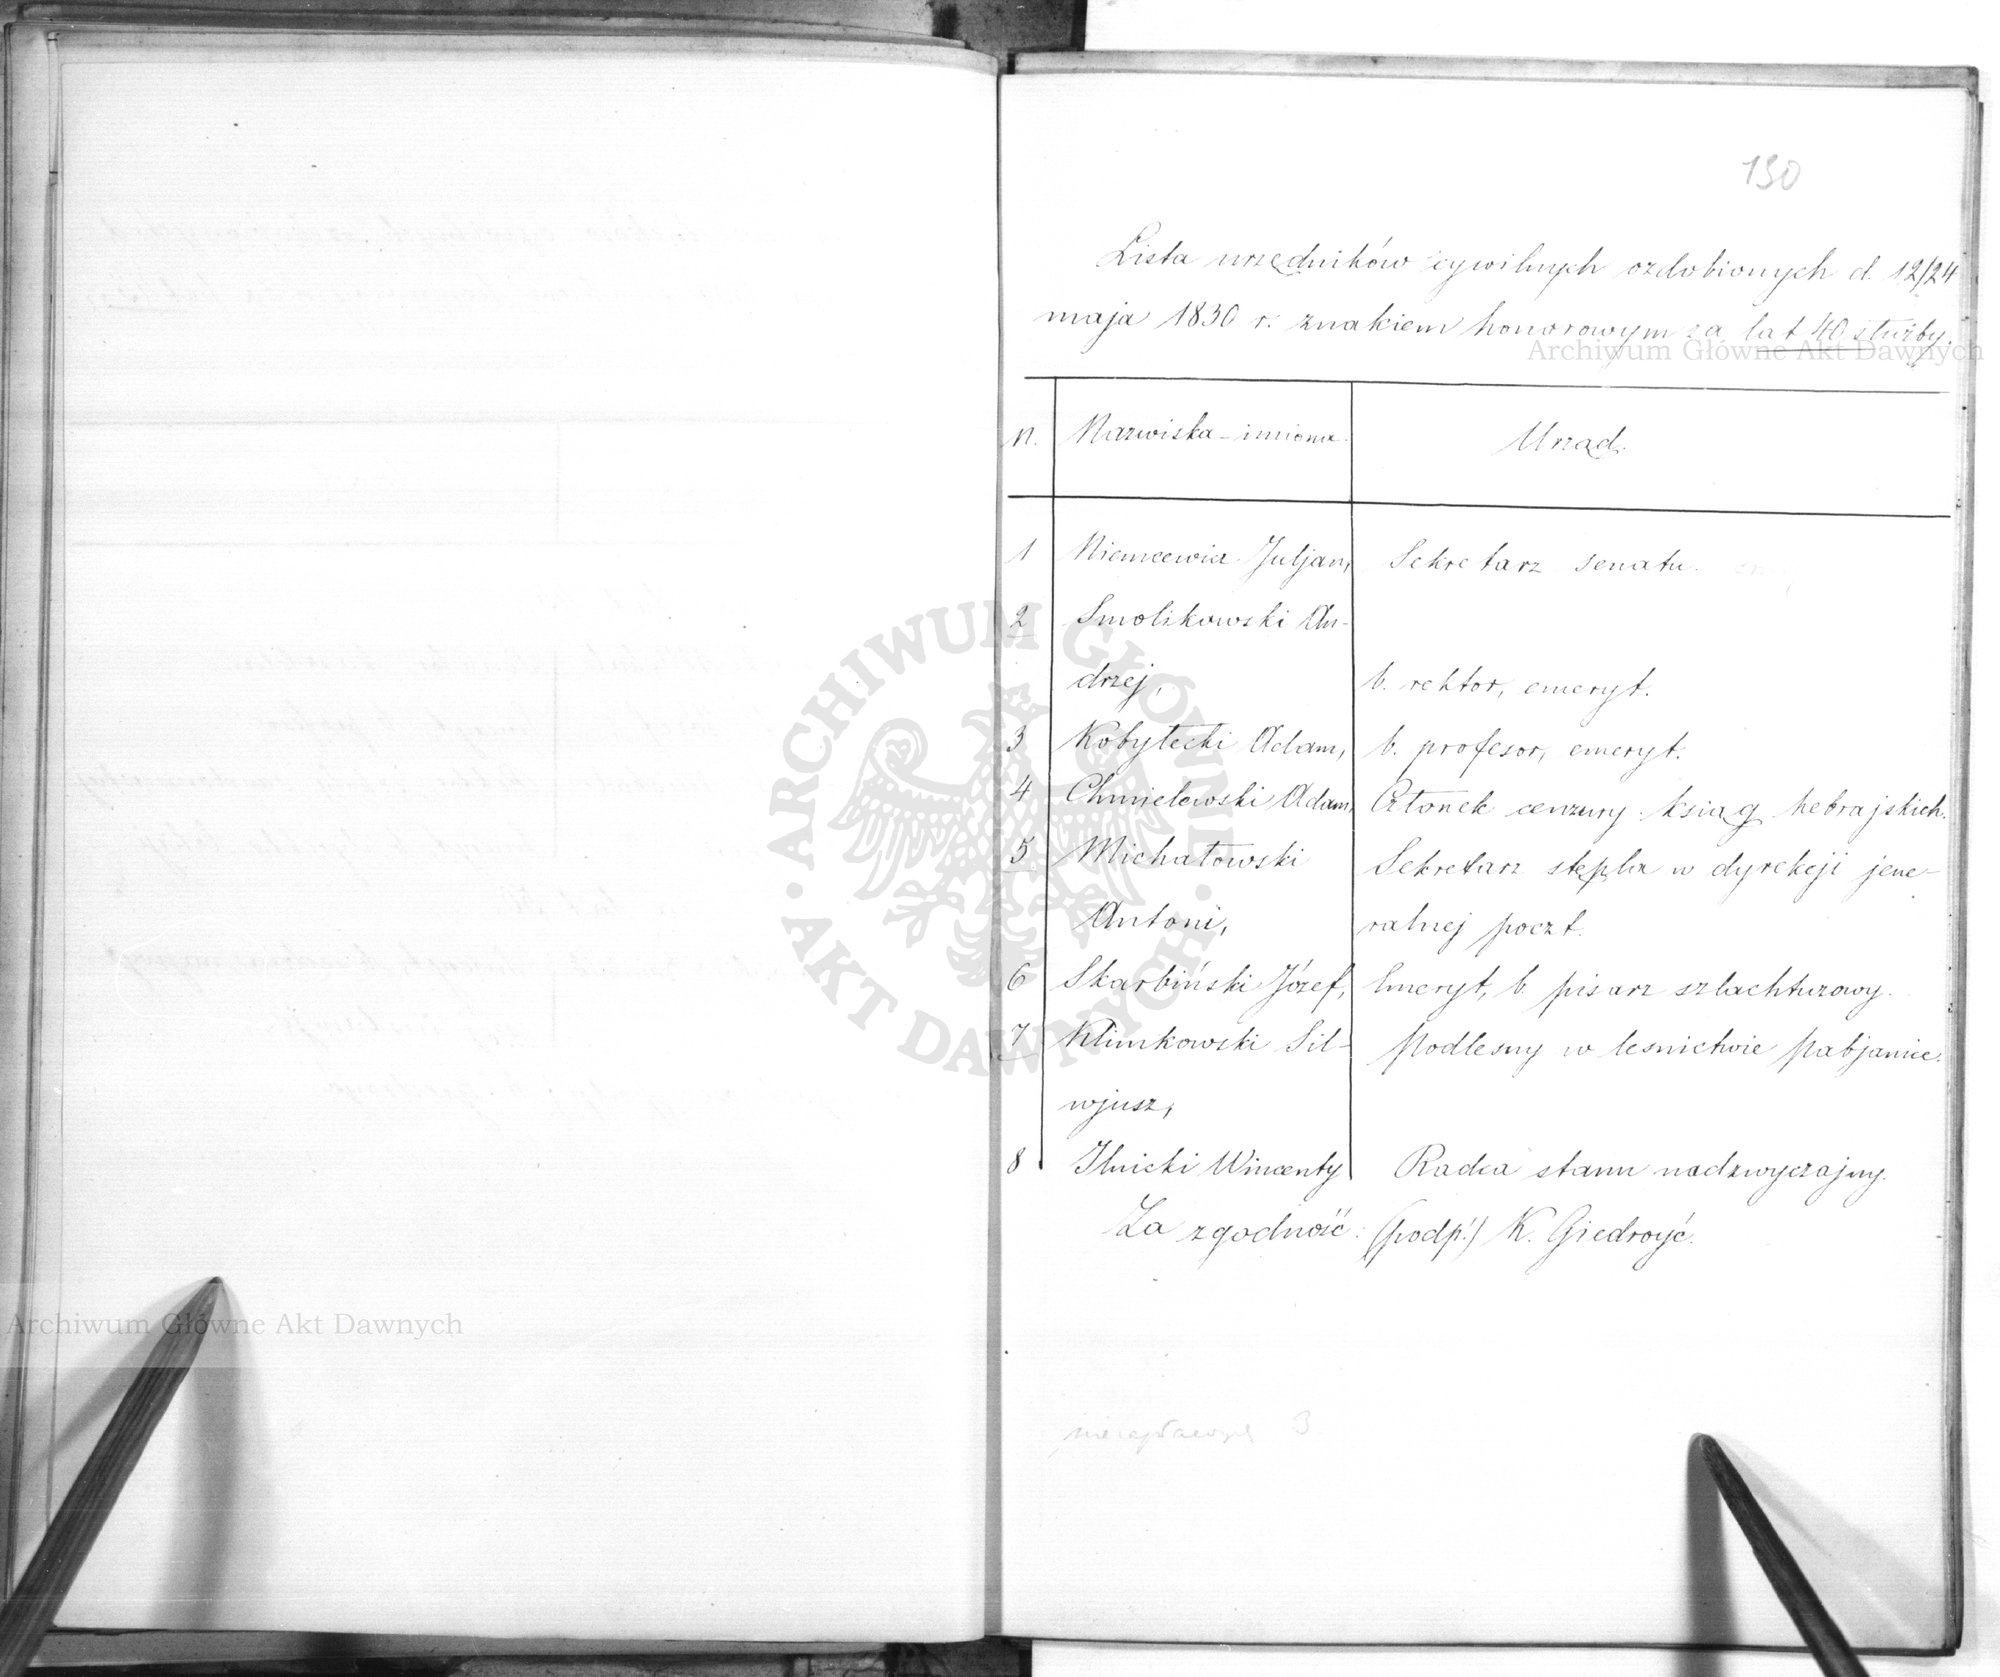 130
Lista urzędników cywilnych ozdobionych d. 12/24
maja 1830 r. znakiem honorowym za lat 40 służby.
Archiwum Główne Akt Dawnych
N. Nazwiska-imiona. Urząd.
1 Niemcewicz Juljan, Sekretarz senatu.
2 Smolikowski An-
drzej, b. rektor, emeryt.
3 Kobyłecki Adam, b. profesor, emeryt.
4 Chmielewski Adam, Członek cenzury ksiąg hebrajskich.
5 Michałowski Sekretarz stępla w dyrekcji jene-
Antoni, ralnej poczt.
6 Skarbiński Józef, Emeryt, b. pisarz szlachtuzowy.
7 Klimkowski Sil- Podlesny w lesnictwie Pabjanice.
wjusz,
8 Ilnicki Wincenty Radca stanu nadzwyczajny.
Za zgodność: (podp.) K. Giedroyć.
ARCHIWUM GŁÓWNE AKT DAWNYCH
Archiwum Główne Akt Dawnych
3